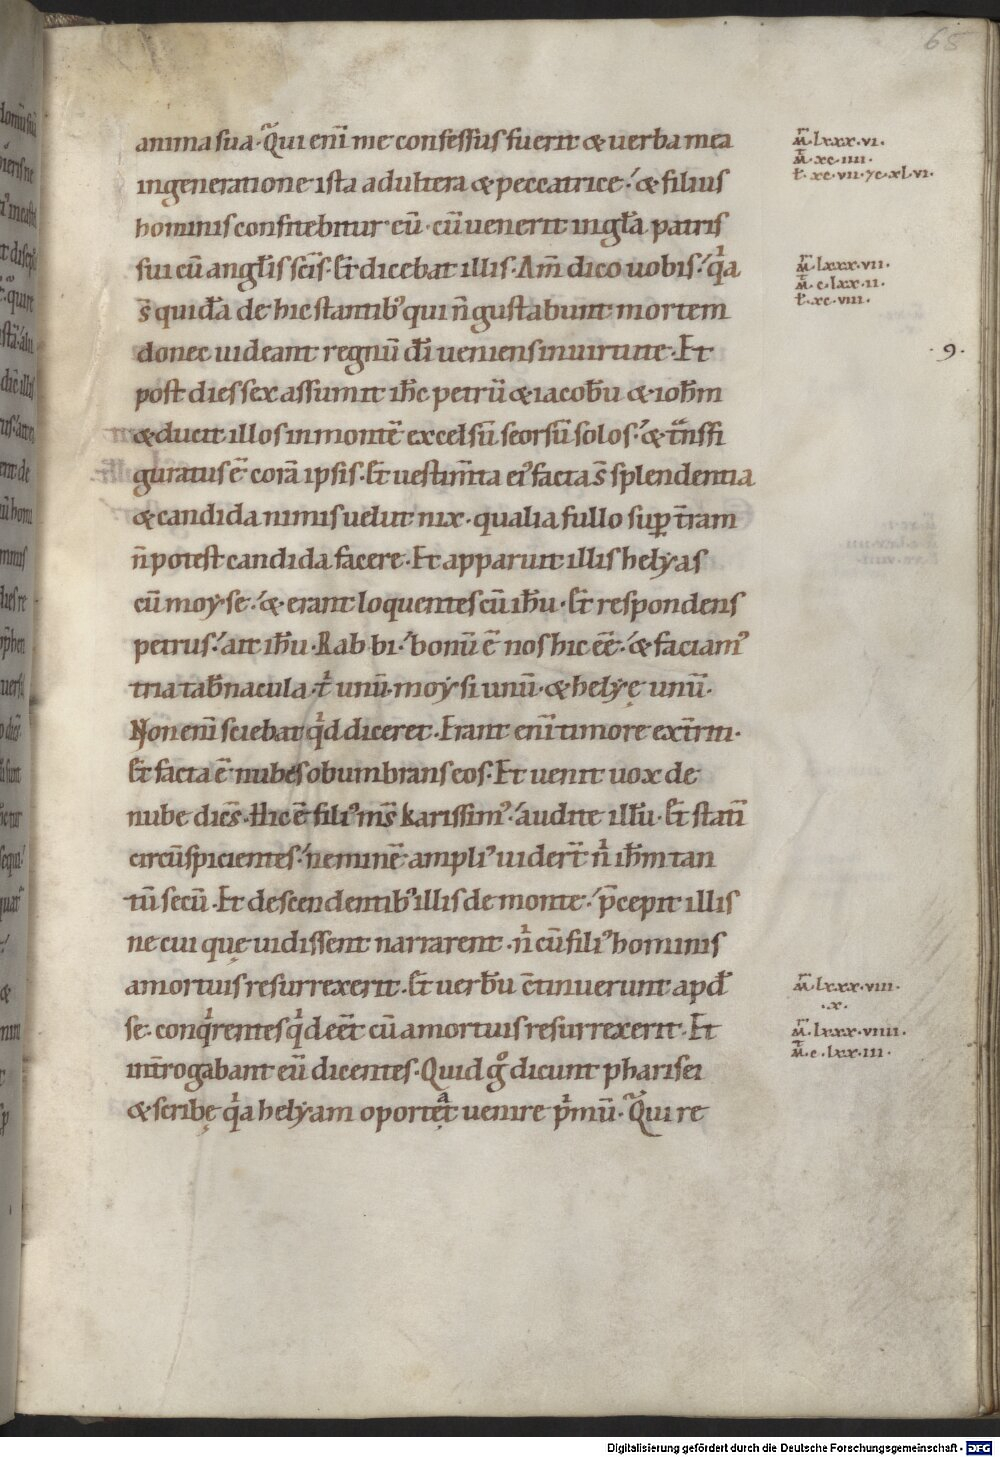 65
anima sua. Qͣui enī me confessus fuerit & uerba mea
in generatione ista adultera & peccatrice. & filius
hominis confitebitur eū. cū uenerit in gl̄a patris
sui cū angl̄is scīs. Et dicebat illis. Am̄ dico uobis. qͥa
s̄ quidā de hic stantibꝰ qui n̄ gustabunt mortem
donec uideant regnū dī ueniens in uirtute. Et
post dies sex assumit ih̄c petrū & iacobū & ioh̄m
& ducit illos in montē excelsū seorsū solos. & tͣnsfi
guratus ē corā ipsis. Et uestim̄ta eiꝰ facta s̄ splendentia
& candida nimis uelut nix. qualia fullo suꝑ t̄ram
n̄ potest candida facere. Et apparuit illis helyas
cū moyse. & erant loquentes cū ih̄u. Et respondens
petrus. ait ih̄u. Rabbi. bonū ē nos hic eē. & faciamꝰ
tria tab̄nacula. tͥ unū. moysi unū. & helyę unū.
Non enī sciebat qͥd diceret. Erant enī timore ext̄riti.
Et facta ē nubes obumbrans eos. Et uenit uox de
nube diēs. Hic ē filiꝰ m̄s karissimꝰ. audite illū. Et statī
circūspicientes. neminē ampliꝰ uidert̄ nͥ ih̄m tan
tū secū. Et descendentibꝰ illis de monte. p̄cepit illis
ne cui quę uidissent narrarent. nͥ cū filiꝰ hominis
a mortuis resurrexerit. Et uerbū c̄tinuerunt apd̄
se. conqͥrentes qͥd eēt cū a mortuis resurrexerit. Et
int̄rogabant eū dicentes. Quid gͦ dicunt pharisei
& scribę qͥa helyam oportet uenire pͥmū. Qͣui re
m̄. lxxx. vi.
m̄. xc. iiii.
l. xc. vii. 7 c. xl. vi.
m̄. lxxx. vii.
m̄. c. lxx. ii.
l. xc. viii.
. 9.
m̄. lxxx. viii.
. x.
m̄. lxxx. viiii.
m̄. c. lxx. iii.
Digitalisierung gefördert durch die Deutsche Forschungsgemeinschaft - DFG